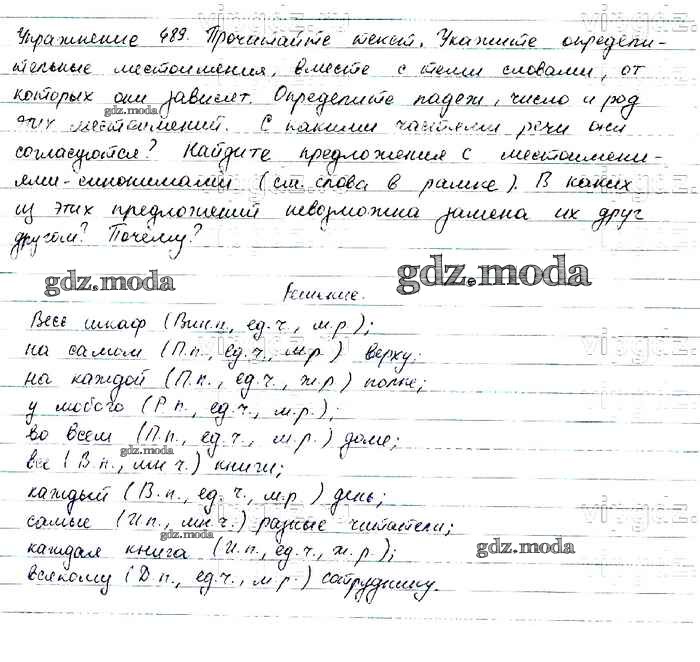 Упражнение 489. Прочитайте текст. Укажите определи-
тельные местоимения, вместе с теми словами, от
которых они зависят. Определите падеж, число и род
gdz.moda
этих местоимений. С какими частями речи они
согласуются? Найдите предложения с местоимени-
ями-синонимами (см. слова в рамке). В каких
из этих предложений невозможна замена их друг
другом? Почему?
gdz.moda
gdz.moda
Решение.
Весь шкаф (Вин.п., ед.ч., м.р.);
на самом (П.п., ед.ч., м.р.) верху;
на каждой (П.п., ед.ч., ж.р.) полке;
у любого (Р.п., ед.ч., м.р.);
во всем (П.п., ед.ч., м.р.) доме;
gdz.moda
все (В.п., мн.ч.) книги;
каждый (В.п., ед.ч., м.р.) день;
самые (И.п., мн.ч.) разные читатели;
gdz.moda
каждая книга (И.п., ед.ч., ж.р.);
gdz.moda
всякому (Д.п., ед.ч., м.р.) сотруднику.